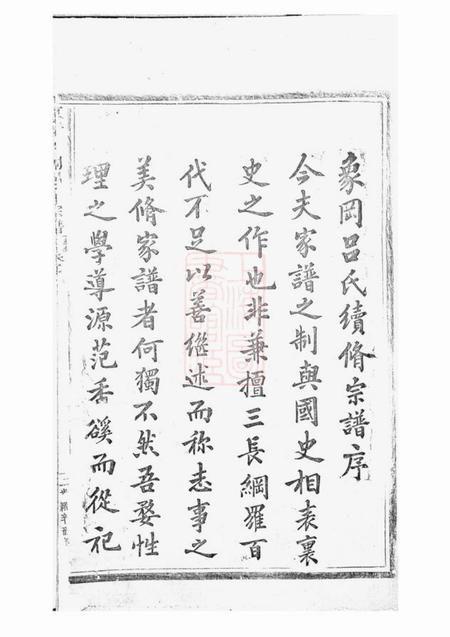 象岡呂氏續脩宗譜序
今夫家譜之制與國史相表裏
史之作也非兼擅三長綱羅百
代不足以善繼述而称志事之
美脩家譜者何獨不然吾婺性
理之學導源范香溪而從祀